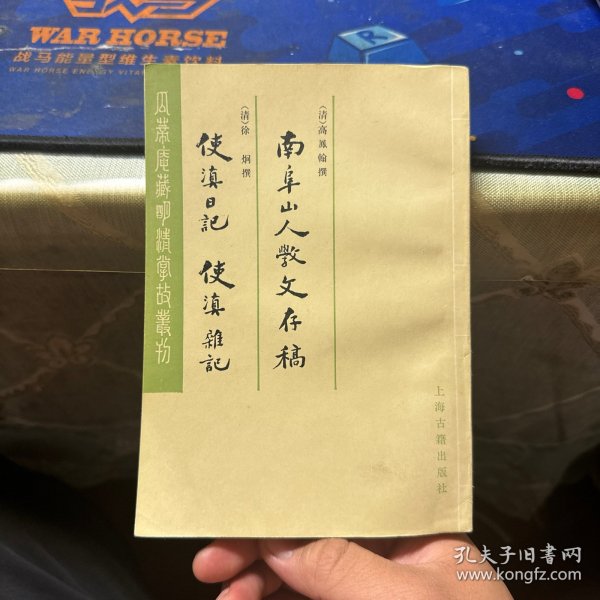 WAR HORSE
战马能量型维生素饮料
WAR HORSE ENERGY VITA
R
瓜蒂庵藏明清掌故叢刊
（清）高鳳翰撰
南阜山人斅文存稿
（清）徐炯撰
使滇日記 使滇雜記
上海古籍出版社
孔夫子旧书网
www.kongfz.com